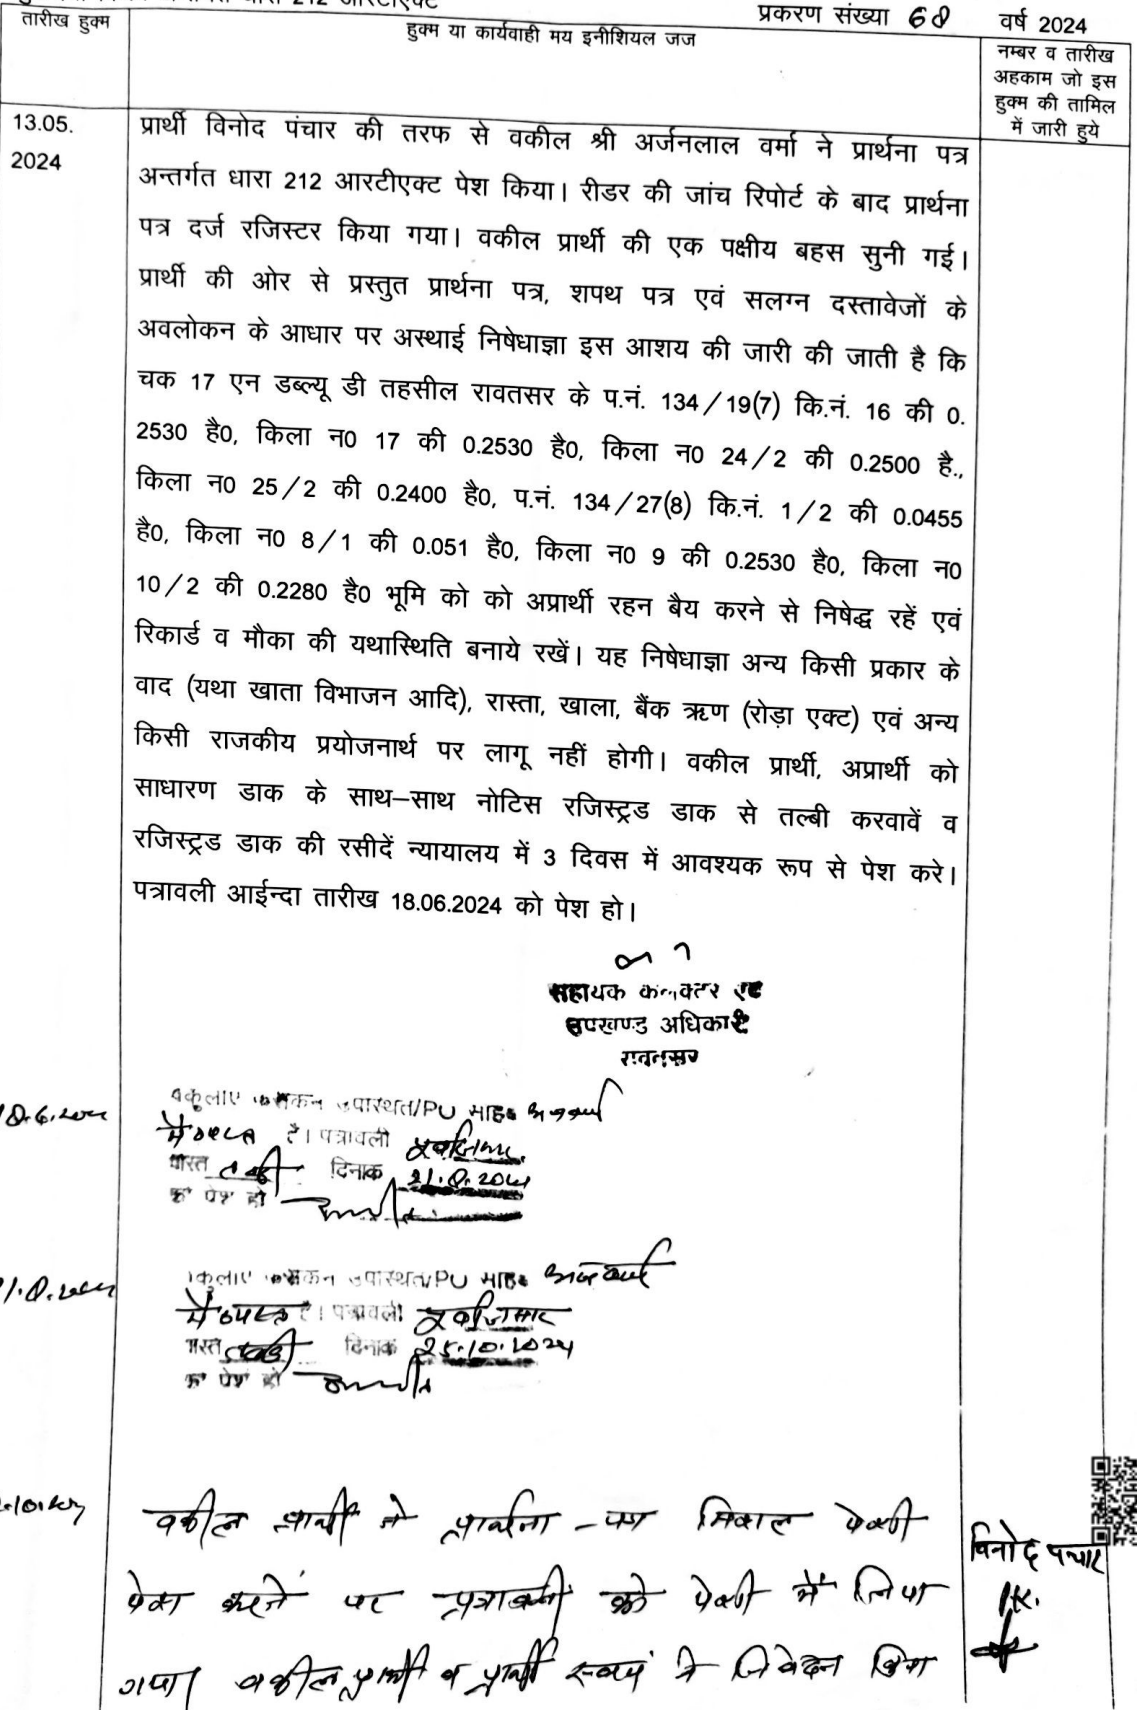 धारा 212 आरटीएक्ट
प्रकरण संख्या 68 वर्ष 2024
तारीख हुक्म
हुक्म या कार्यवाही मय इनीशियल जज
नम्बर व तारीख
अहकाम जो इस
हुक्म की तामिल
में जारी हुये
13.05.
2024
प्रार्थी विनोद पंचार की तरफ से वकील श्री अर्जनलाल वर्मा ने प्रार्थना पत्र
अन्तर्गत धारा 212 आरटीएक्ट पेश किया। रीडर की जांच रिपोर्ट के बाद प्रार्थना
पत्र दर्ज रजिस्टर किया गया। वकील प्रार्थी की एक पक्षीय बहस सुनी गई।
प्रार्थी की ओर से प्रस्तुत प्रार्थना पत्र, शपथ पत्र एवं सलग्न दस्तावेजों के
अवलोकन के आधार पर अस्थाई निषेधाज्ञा इस आशय की जारी की जाती है कि
चक 17 एन डब्ल्यू डी तहसील रावतसर के प.नं. 134/19(7) कि.नं. 16 की 0.
2530 है0, किला न0 17 की 0.2530 है0, किला न0 24/2 की 0.2500 है.,
किला न0 25/2 की 0.2400 है0, प.नं. 134/27(8) कि.नं. 1/2 की 0.0455
है0, किला न0 8/1 की 0.051 है0, किला न0 9 की 0.2530 है0, किला न0
10/2 की 0.2280 है0 भूमि को को अप्रार्थी रहन बैय करने से निषेद्ध रहें एवं
रिकार्ड व मौका की यथास्थिति बनाये रखें। यह निषेधाज्ञा अन्य किसी प्रकार के
वाद (यथा खाता विभाजन आदि), रास्ता, खाला, बैंक ऋण (रोड़ा एक्ट) एवं अन्य
किसी राजकीय प्रयोजनार्थ पर लागू नहीं होगी। वकील प्रार्थी, अप्रार्थी को
साधारण डाक के साथ–साथ नोटिस रजिस्ट्रड डाक से तल्बी करवावें व
रजिस्ट्रड डाक की रसीदें न्यायालय में 3 दिवस में आवश्यक रूप से पेश करे।
पत्रावली आईन्दा तारीख 18.06.2024 को पेश हो।
सहायक कलक्टर एवं
उपखण्ड अधिकारी
रावतसर
उपस्थित/PO
है। पत्रावली
दिनांक
को पेश हो
उपस्थित/PO
है। पत्रावली
दिनांक 25.10.2024
को पेश हो
वकील प्रार्थी ने प्रार्थना-पत्र मिसल पेशी
पेश करने पर पत्रावली को पेशी में लिया
गया। वकील प्रार्थी व प्रार्थी स्वयं ने निवेदन किया
विनोद पन्चार